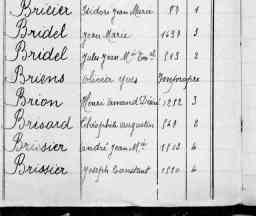 Bricier Isidore Jean Marie 83 1
Bridel Jean Marie 1639 3
Bridel Jules Jean Mie 813 2
Briens Olivier Yves
Brion Henri Armand Désiré 1292 3
Brisard Christophe Augustin 869 2
Brissier André Jean Mie 1803 4
Brissier Joseph Constant 1880 4